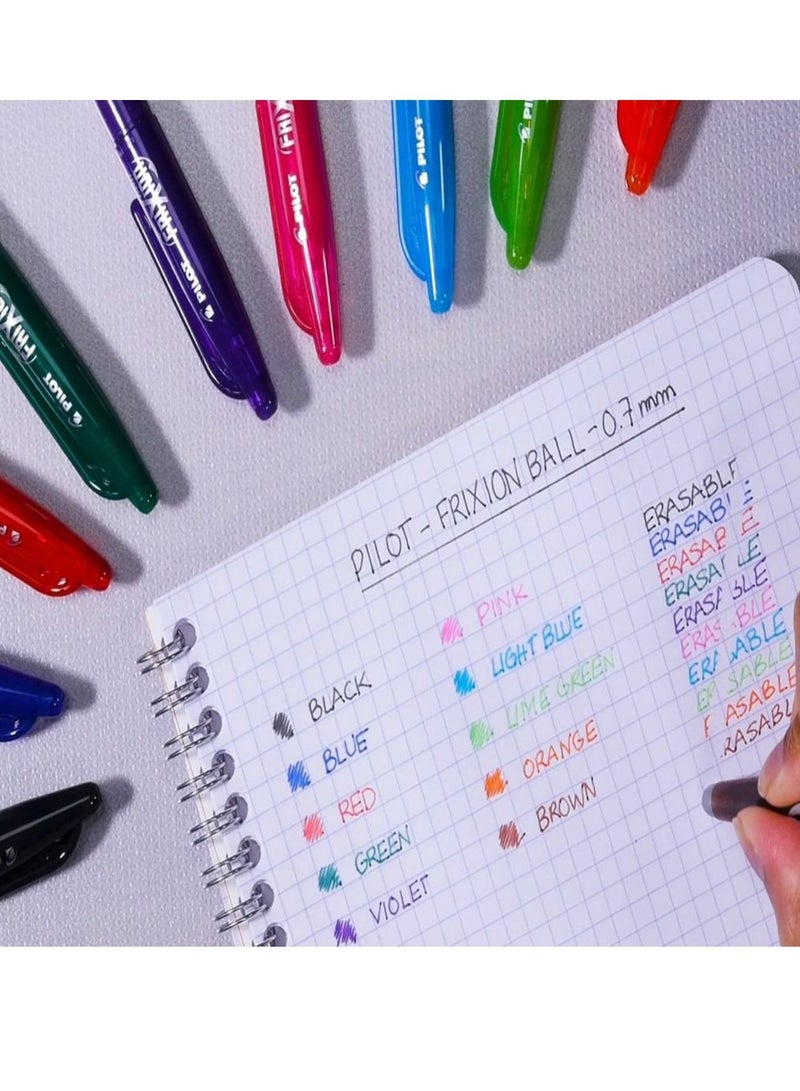 FRIXION
PILOT
FRIX
PILOT
PILOT
FRIXIO
PILOT
PILOT - FRIXION BALL - 0.7 mm
BLACK
BLUE
RED
GREEN
VIOLET
PINK
LIGHT BLUE
LIME GREEN
ORANGE
BROWN
ERASABLE
ERASAB E
ERASAB E
ERASA LE
ERASA BLE
ERAS BLE
ERA ABLE
ER SABLE
E ASABLE
RASABL